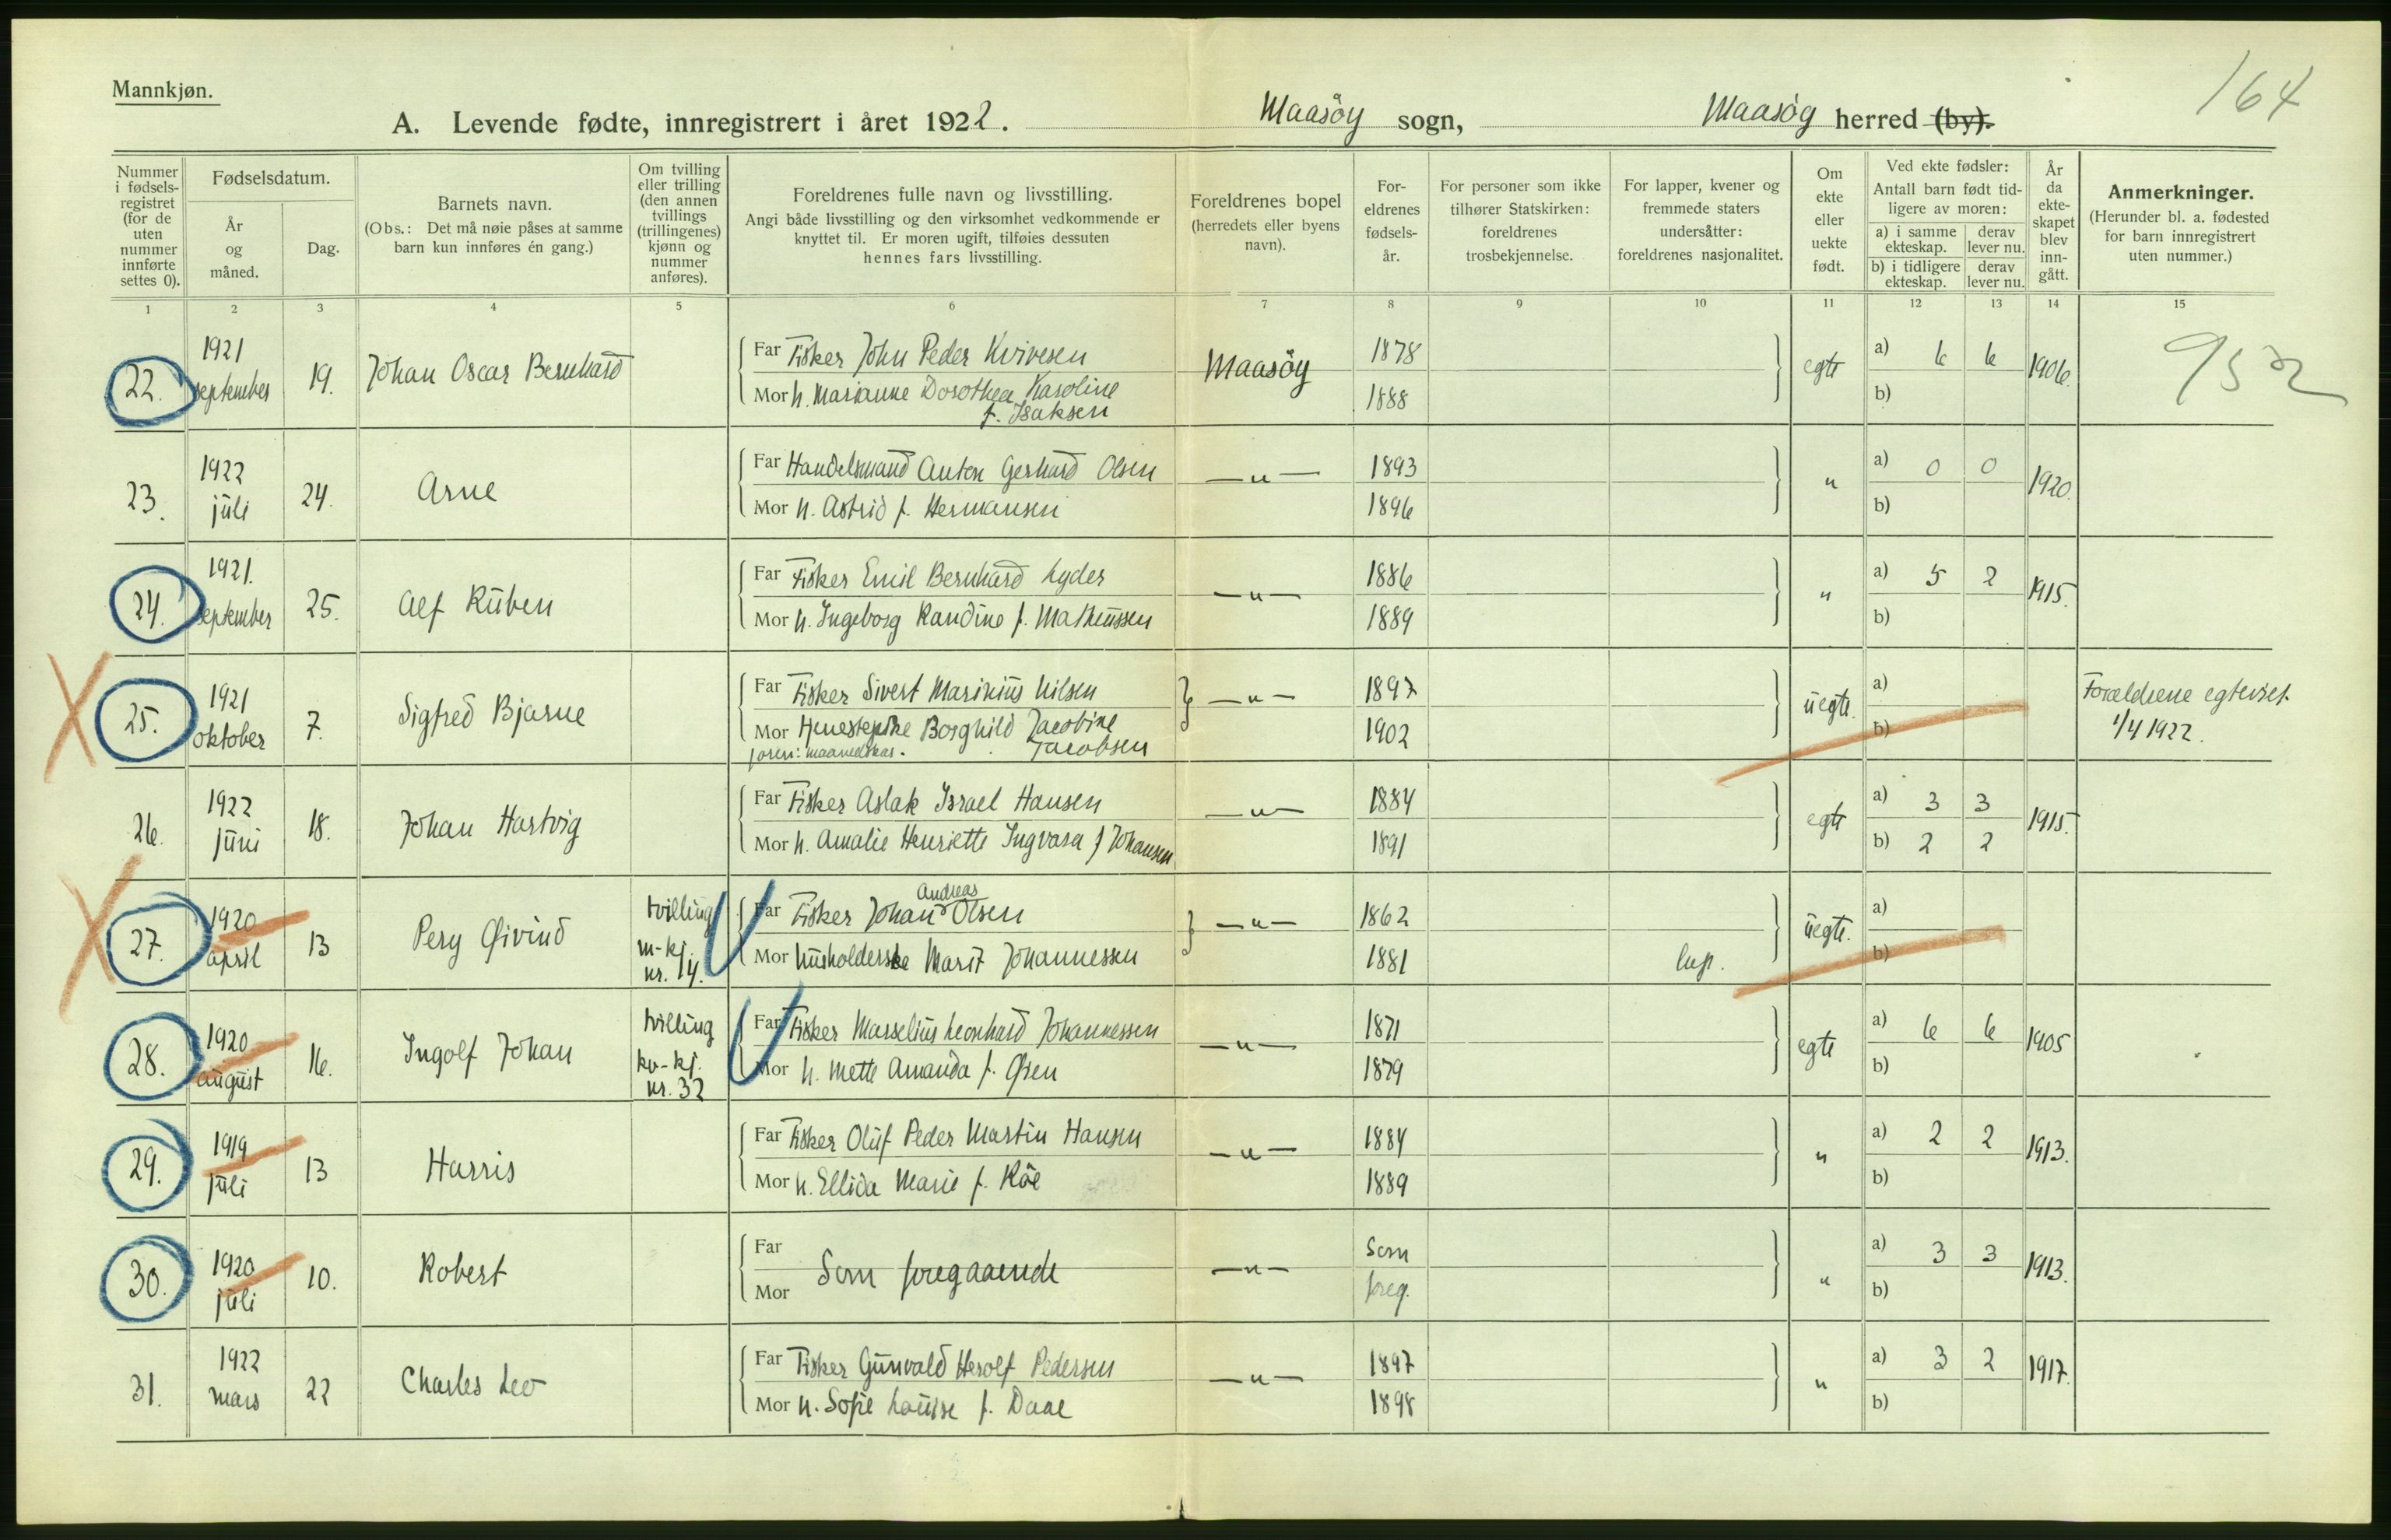 164
Mannkjøn.
A. Levende fødte, innregistrert i året 1922. Maasöy sogn, Maasöy herred (by).
Nummer i fødsels-registret (for de uten nummer innførte settes 0).
Fødselsdatum.
År og måned.
Dag.
Barnets navn.
(Obs.: Det må nøie påses at samme barn kun innføres én gang.)
Om tvilling eller trilling (den annen tvillings (trillingenes) kjønn og nummer anføres).
Foreldrenes fulle navn og livsstilling.
Angi både livsstilling og den virksomhet vedkommende er knyttet til. Er moren ugift, tilføies dessuten hennes fars livsstilling.
Foreldrenes bopel (herredets eller byens navn).
For-eldrenes fødsels-år.
For personer som ikke tilhører Statskirken: foreldrenes trosbekjennelse.
For lapper, kvener og fremmede staters undersåtter: foreldrenes nasjonalitet.
Om ekte eller uekte født.
Ved ekte fødsler:
Antall barn født tid-ligere av moren:
a) i samme ekteskap. derav lever nu.
b) i tidligere ekteskap. derav lever nu.
År da ekte-skapet blev inn-gått.
Anmerkninger.
(Herunder bl. a. fødested for barn innregistrert uten nummer.)
1 2 3 4 5 6 7 8 9 10 11 12 13 14 15
22. 1921 september 19. Johan Oscar Bernhard
Far Fisker John Peder Kvivesen Maasöy 1878 egte a) 6 6 1906. 952
Mor h. Marianne Dorothea Karoline 1888 b)
f. Isaksen
23. 1922 juli 24. Arne
Far Handelsmand Anton Gerhard Olsen — " — 1893 " a) 0 0 1920.
Mor h. Astrid f. Hermansen 1896 b)
24. 1921. september 25. Alf Ruben
Far Fisker Emil Bernhard Lyder — " — 1886 " a) 5 2 1915.
Mor h. Ingeborg Randine f. Matheussen 1889 b)
25. 1921 oktober 7. Sigfred Bjarne
Far Fisker Sivert Marinius Nilsen — " — 1897 uegte. a) Forældrene egteviet
Mor Tjenestepike Borghild Jacobine 1902 b) 1/4 1922.
Jacobsen
26. 1922 juni 18. Johan Hartvig
Far Fisker Aslak Israel Hansen — " — 1884 egte a) 3 3 1915.
Mor h. Amalie Henriette Ingvara f Johansen 1891 b) 2 2
27. 1920 april 13 Pery Øivind tvilling m-kj. nr. 14.
Far Fisker Johan Andreas Olsen — " — 1862 uegte. a)
Mor husholderske Marit Johannessen 1881 lap. b)
28. 1920 august 16. Ingolf Johan tvilling kv-kj. nr. 32
Far Fisker Marselius Leonhard Johannessen — " — 1871 egte a) 6 6 1905
Mor h. Mette Amanda f. Øien 1879 b)
29. 1919 juli 13 Harris
Far Fisker Oluf Peder Martin Hansen — " — 1884 " a) 2 2 1913.
Mor h. Ellida Marie f. Röe 1889 b)
30. 1920 juli 10. Robert
Far Mor Som foregaaende — " — Som foreg. " a) 3 3 1913.
b)
31. 1922 mars 22 Charles Leo
Far Fisker Gunvald Herolf Pedersen — " — 1897 " a) 3 2 1917.
Mor h. Sofie Louise f. Daae 1898 b)